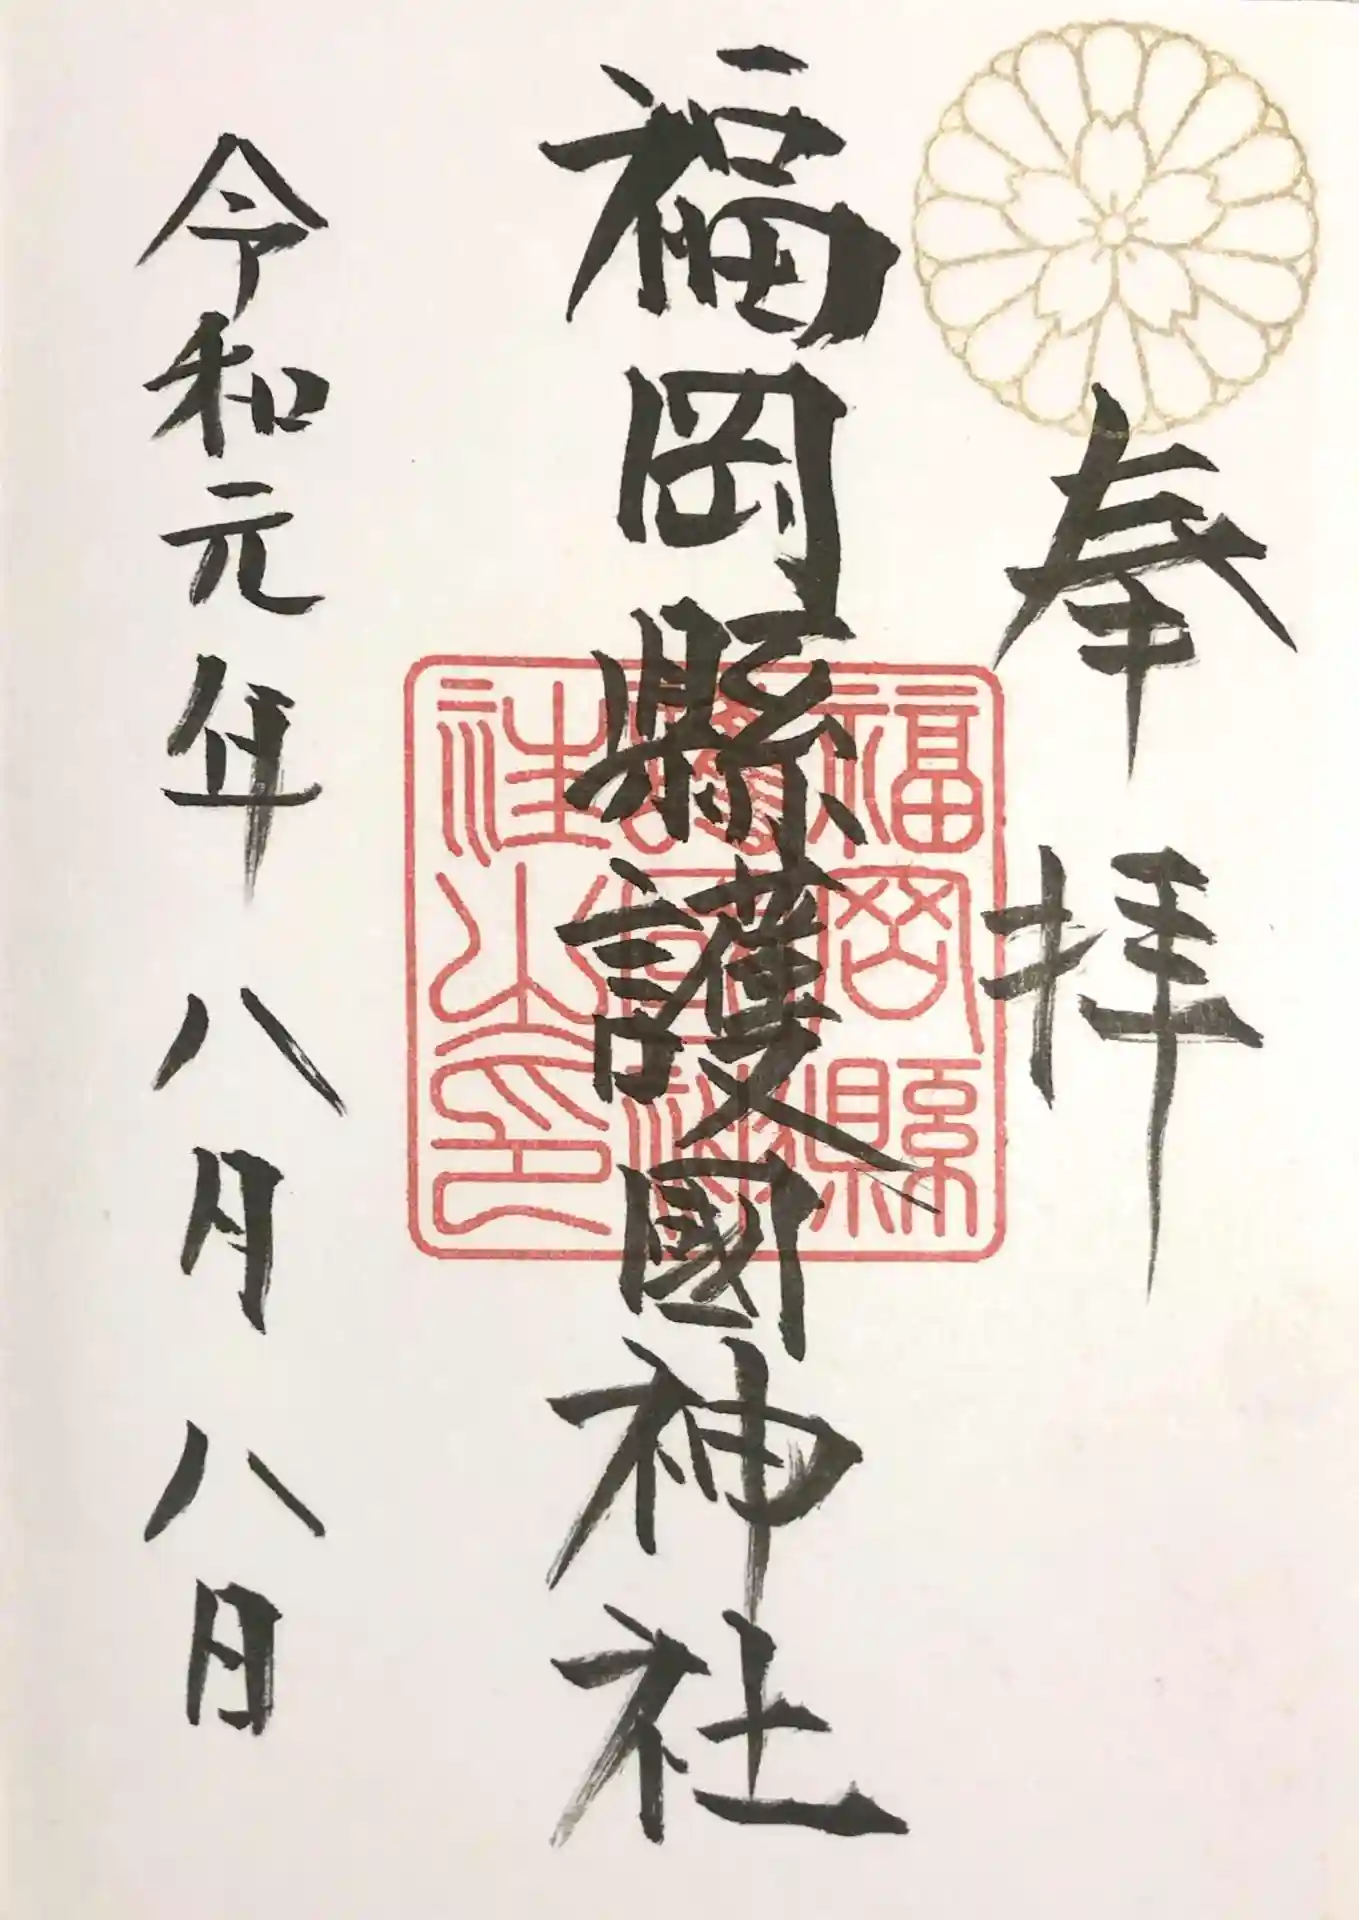 奉拝
福岡縣護國神社
福岡縣
護國神
社之印
令和元年八月八日